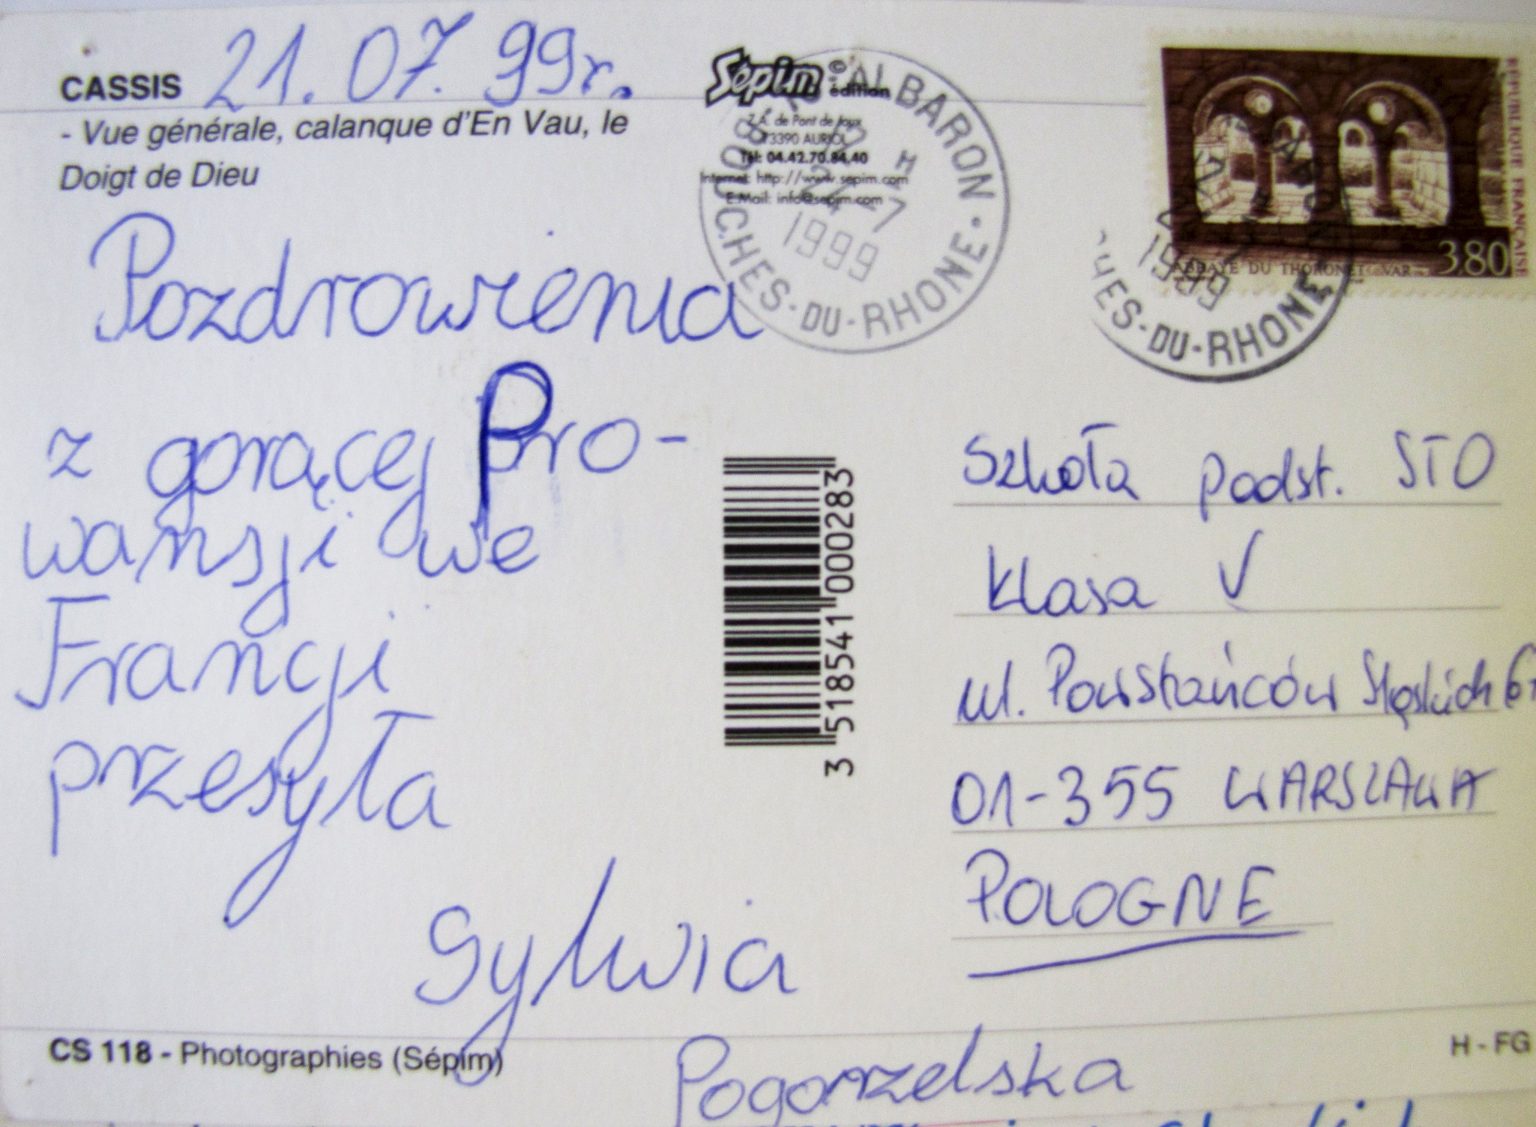 CASSIS 21.07.99r.
- Vue générale, calanque d'En Vau, le
Doigt de Dieu
Pozdrowienia
z gorącej Pro-
wansji we
Francji
przesyła
Sylwia
Pogorzelska
CS 118 - Photographies (Sépim)
Sepim édition
Z.A. de Pont de Joux
13390 AURIOL
Tél: 04.42.70.84.40
Internet: http://www.sepim.com
E.Mail: info@sepim.com
ALBARON
24-7
1999
BOUCHES-DU-RHONE
RÉPUBLIQUE FRANÇAISE
3.80
ABBAYE DU THORONET VAR
1999
CHES-DU-RHONE
3 518541 000283
Szkoła podst. STO
Klasa V
ul. Powstańców Śląskich
01-355 WARSZAWA
POLOGNE
H - FG